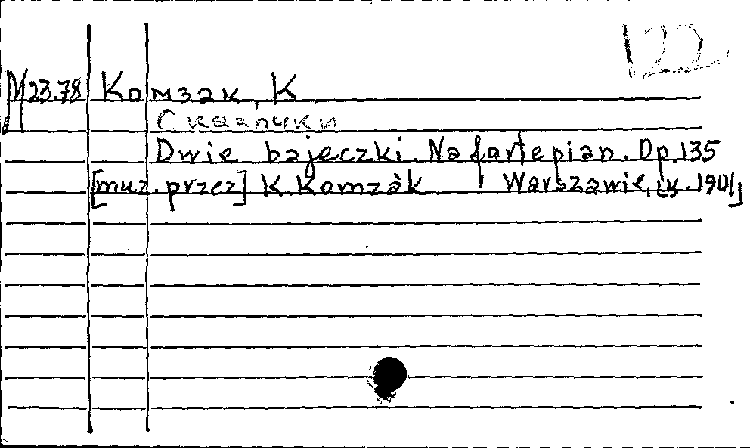 122
M 23.78 Комзак, К
Сказочки
Dwie bajeczki. Na fortepian. Op. 135
[muz. przez] K. Komzàk Warszawie, 1901]